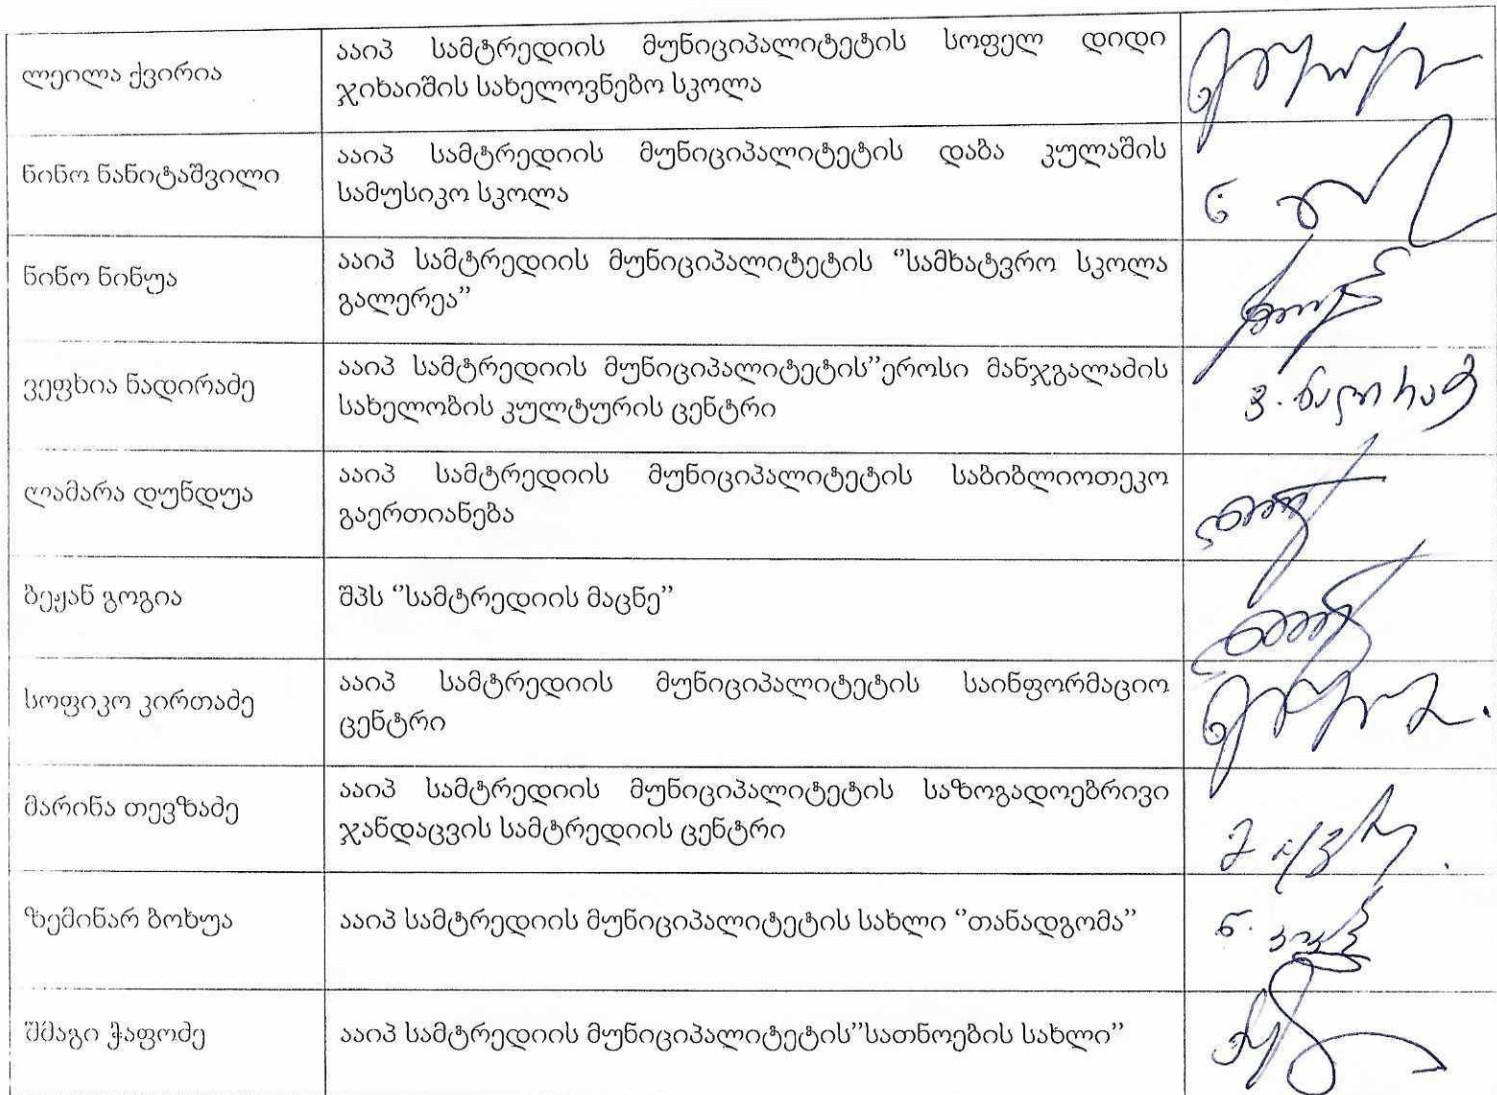 ლეილა ქვირია
ააიპ სამტრედიის მუნიციპალიტეტის სოფელ დიდი
ჯიხაიშის სახელოვნებო სკოლა
ნინო ნანიტაშვილი
ააიპ სამტრედიის მუნიციპალიტეტის დაბა კულაშის
სამუსიკო სკოლა
ნინო ნინუა
ააიპ სამტრედიის მუნიციპალიტეტის “სამხატვრო სკოლა
გალერეა”
ვეფხია ნადირაძე
ააიპ სამტრედიის მუნიციპალიტეტის”ეროსი მანჯგალაძის
სახელობის კულტურის ცენტრი
ვ. ნადირაძ
ლამარა დუნდუა
ააიპ სამტრედიის მუნიციპალიტეტის საბიბლიოთეკო
გაერთიანება
ბეჟან გოგია
შპს “სამტრედიის მაცნე”
სოფიკო კირთაძე
ააიპ სამტრედიის მუნიციპალიტეტის საინფორმაციო
ცენტრი
მარინა თევზაძე
ააიპ სამტრედიის მუნიციპალიტეტის საზოგადოებრივი
ჯანდაცვის სამტრედიის ცენტრი
ზემინარ ბოხუა
ააიპ სამტრედიის მუნიციპალიტეტის სახლი “თანადგომა”
შმაგი ჭაფოძე
ააიპ სამტრედიის მუნიციპალიტეტის”სათნოების სახლი”